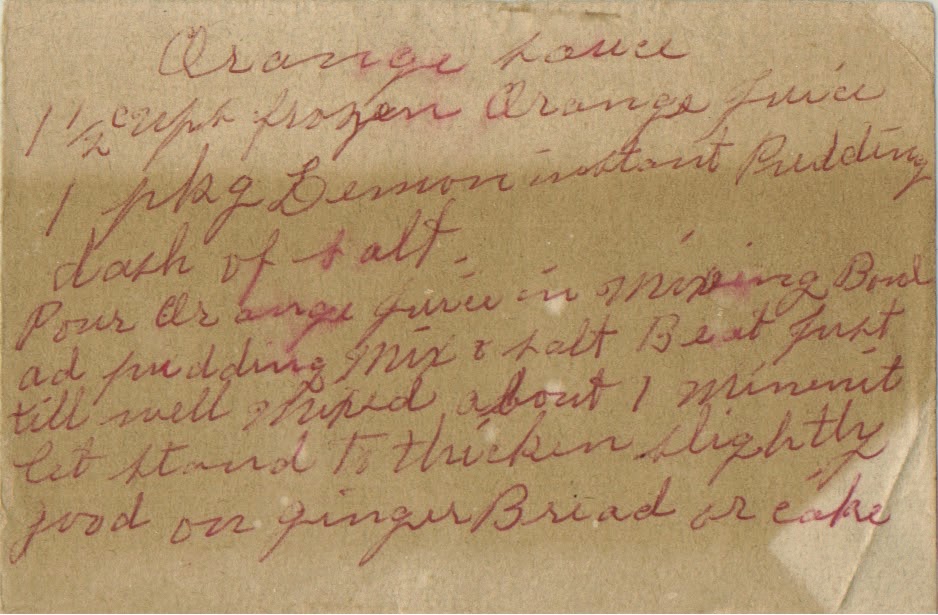 Orange sauce
1 1/2 cups frozen Orange Juice
1 pkg Lemon instant Pudding
dash of salt.
Pour Orange Juice in Mixing Bowl
ad pudding Mix & salt Beat Just
till well Mixed about 1 Mineuit
let stand To thicken slightly
good on ginger Bread or cake